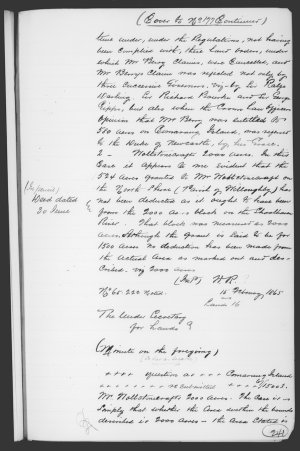 (Cover to No 177 Continued)
time under, under the Regulations, not having
been complied with, these Land orders, under
which Mr Berry Claims, were Cancelled, and
Mr Berry's Claim was rejected not only by
three successive Governors, viz by Sir Ralph
Darling, Sir Richard Bourke, and Sir George
Gipps, but also when the Crown Law Officers
Opinion that Mr Berry was entitled to
560 acres on Comarong Island, was referred
to the Duke of Newcastle, by his Grace.
2 - Wollstonecrafts 2000 acres. In this
Case it appears to me evident that the
524 acres granted to Mr Wollstonecraft on
the North Shore (Parish of Willoughby) has
not been deducted as it ought to have been
from the 2000 acs block on the Shoalhaven
River. That block was measured as 2000
acres, although the Grant is said to be for
1500 Acres no deduction has been made from
the actual area as marked out and des-
cribed. viz 2000 acres
Deed dated
20 June
15 February 1865
Lands 16
No 65. 222 Noted.
The Under Secretary
for Lands
(Minute on the foregoing)
++++ Question as ++++ Comarong Island
Mr Wollstonecrafts 2000 acres. The Case is
Simply that whether the Area within the bounds
described is 2000 acres - the area stated in
241